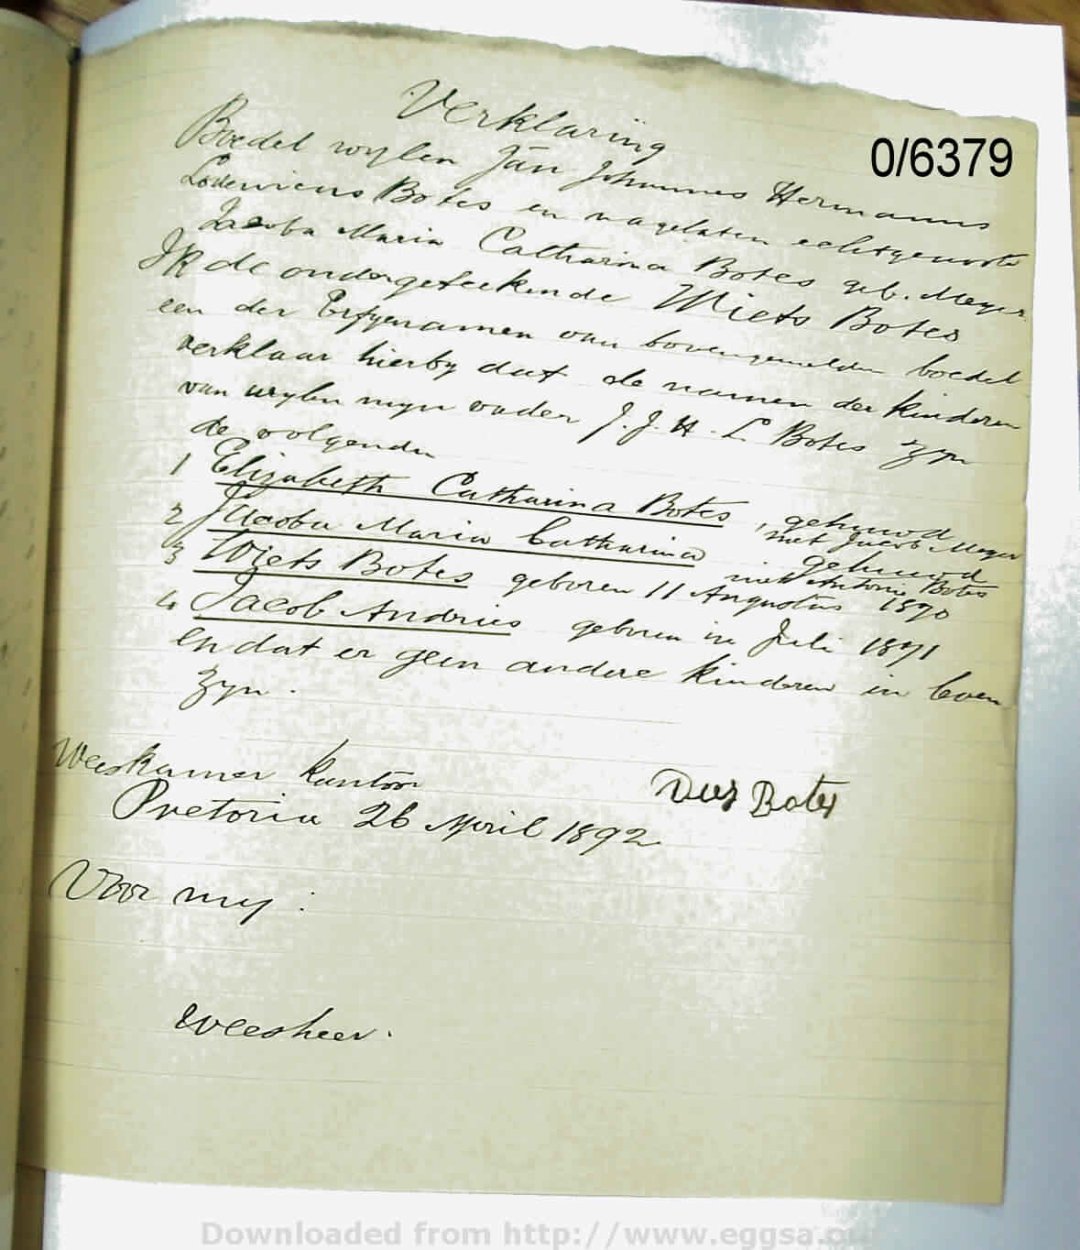 Verklaring
0/6379
Boedel wylen Jan Johannes Hermanus
Lodewicus Botes en nagelaten echtgenoote
Jacoba Maria Catharina Botes geb. Meyer
Ik de ondergeteekende Wiets Botes
een der Erfgenamen van bovengemelden boedel
verklaar hierby dat de namen der kinderen
van wylen myn vader J. J. H. L. Botes zyn
de volgende
1 Elizabeth Catharina Botes, gehuwd
met Jacob Meyer
2 Jacoba Maria Catharina gehuwd
met Antonie Botes
3 Wiets Botes geboren 11 Augustus 1870
4 Jacob Andries geboren in Juli 1871
en dat er geen andere kinderen in leven
zyn.
Weeskamer kantoor
Botes
Pretoria 26 April 1892
Voor my:
Weesheer.
Downloaded from http://www.eggsa.org